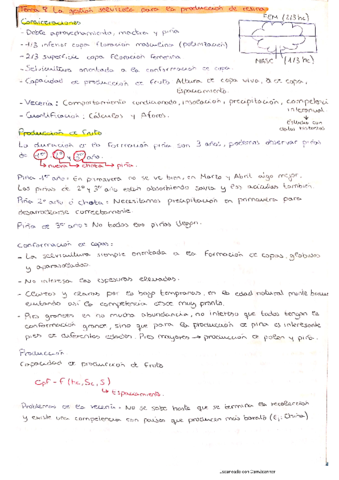 Tema 8. La gestión selvícola para la producción de resina
Consideraciones
- Doble aprovechamiento, madera y piña
- 1/3 inferior copa floración masculina (polinización)
- 2/3 superior copa floración femenina
- Selvicultura orientada a la conformación de copa.
- Capacidad de producción de fruto Altura de copa viva, Ø de copa, Espaciamiento
- Vecería: Comportamiento condicionado, insolación, precipitación, competencia interanual
- Cuantificación, Cálculos y Aforos.
FEM (2/3 hc)
MASC (1/3 hc)
datos históricos
Producción de fruto
La duración de la formación piña son 3 años, podemos observar piñas de 1er, 2º y 3er año.
chota
piña.
Piña 1er año: En primavera no se ve bien, en Marzo y Abril algo mejor.
Las piñas de 2º y 3er años están absorbiendo savia y las acículas también.
Piña 2º año o chota: Necesitamos precipitación en primavera para desarrollarse correctamente
Piña de 3er años: No todas las piñas llegan.
Conformación de copas:
- La selvicultura siempre orientada a la formación de copas, globosas y aparasoladas.
- No interesa las espesuras elevadas.
- Clareos y claras por lo bajo tempranas, en la edad natural monte bravo evitando así la competencia desde muy pronto.
- Pies grandes en no mucha abundancia, no interesa que todos tengan la conformación grande, sino que para la producción de piña es interesante pies de diferentes edades. Pies mayores → producción de polen y piña.
Producción
Capacidad de producción de fruto
Cpf = f (hc, Sc, S)
Espaciamiento
Problemas de la vecería: No se sabe hasta que se termina la recolección y existe una competencia con países que producen más barato